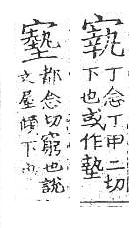 㝪
丁念丁甲二切
下也或作墊
都念切窮也說
文屋傾下也